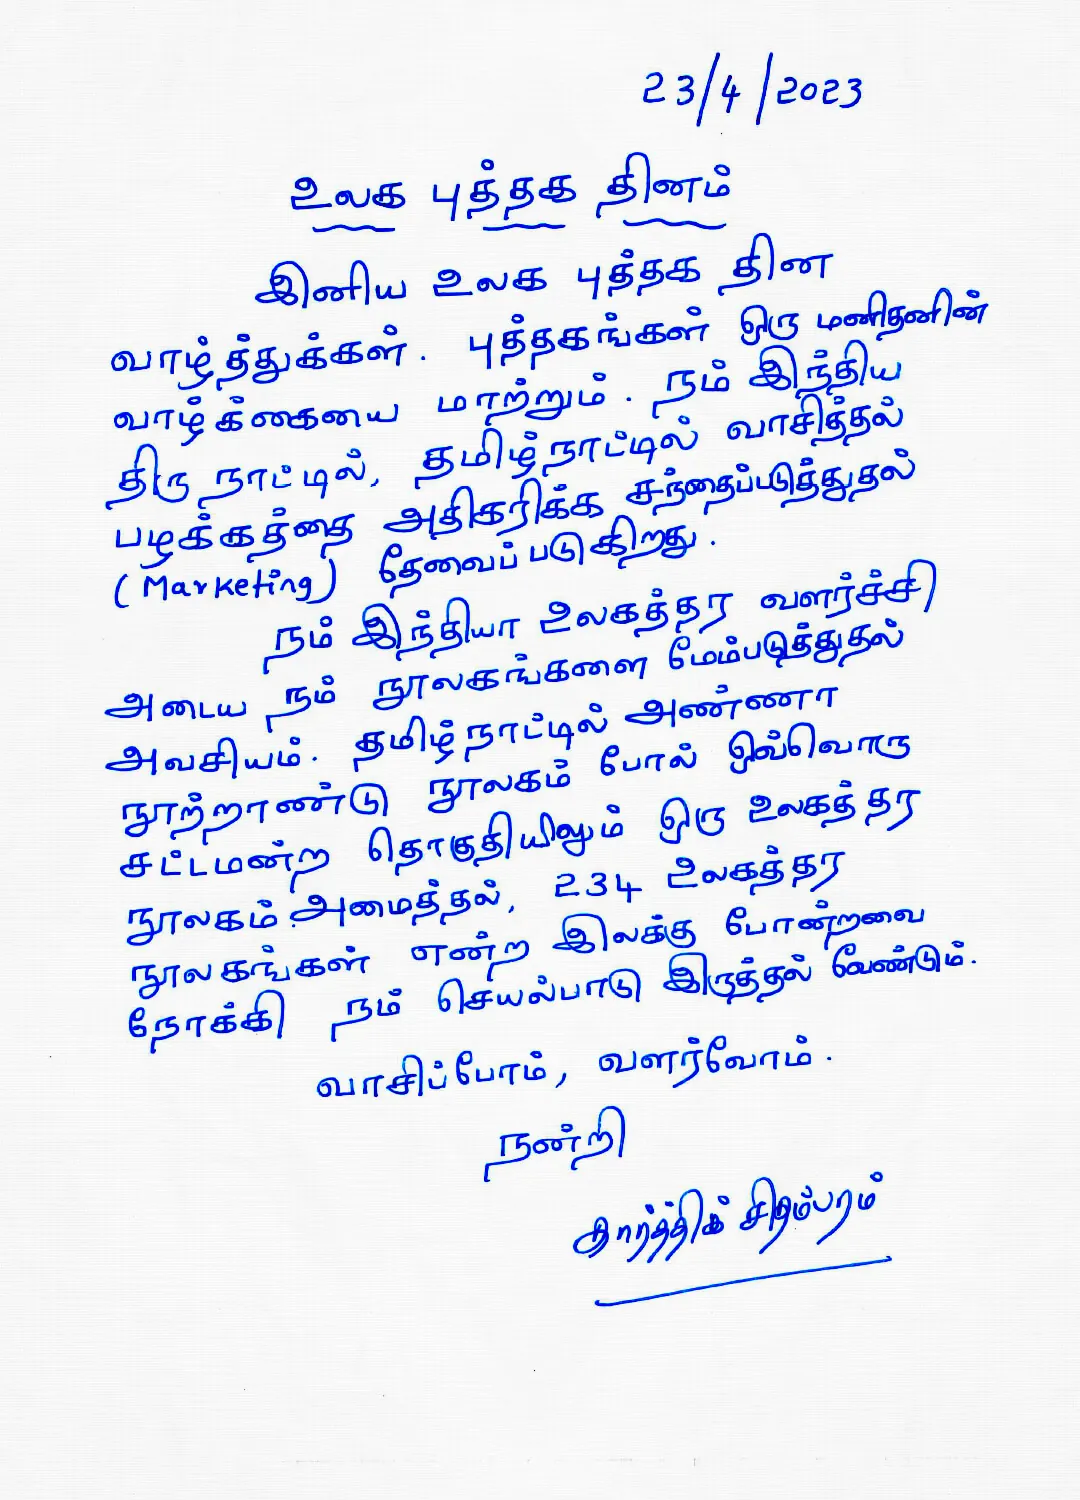 23/4/2023
உலக புத்தக தினம்
இனிய உலக புத்தக தின
வாழ்த்துக்கள். புத்தகங்கள் ஒரு மனிதனின்
வாழ்க்கையை மாற்றும். நம் இந்திய
திரு நாட்டில், தமிழ்நாட்டில் வாசித்தல்
பழக்கத்தை அதிகரிக்க சந்தைப்படுத்துதல்
(Marketing) தேவைப்படுகிறது.
நம் இந்தியா உலகத்தர வளர்ச்சி
அடைய நம் நூலகங்களை மேம்படுத்துதல்
அவசியம். தமிழ்நாட்டில் அண்ணா
நூற்றாண்டு நூலகம் போல் ஒவ்வொரு
சட்டமன்ற தொகுதியிலும் ஒரு உலகத்தர
நூலகம் அமைத்தல், 234 உலகத்தர
நூலகங்கள் என்ற இலக்கு போன்றவை
நோக்கி நம் செயல்பாடு இருத்தல் வேண்டும்.
வாசிப்போம், வளர்வோம்.
நன்றி
கார்த்திக் சிதம்பரம்